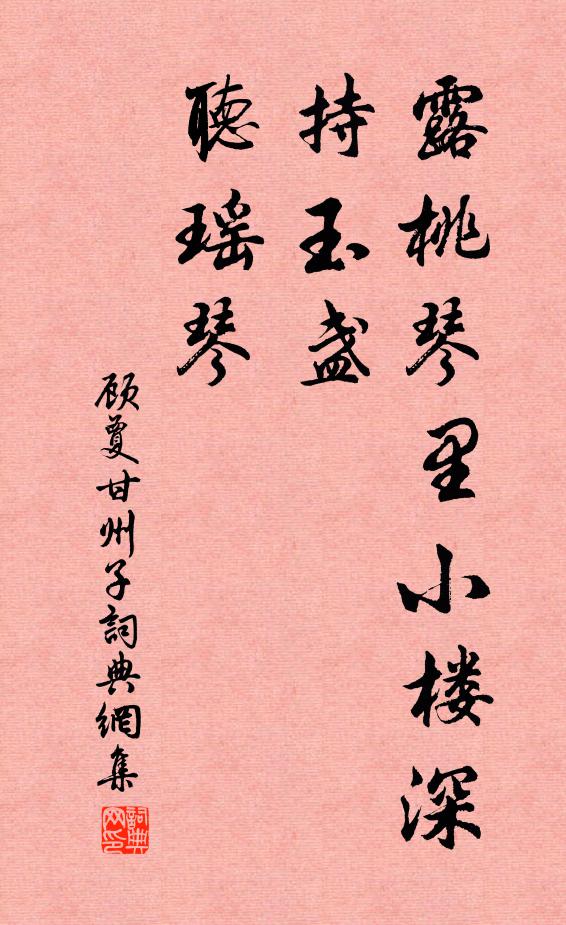 露桃琴里小楼深
持玉盏
聽瑶琴
顾夐甘州子詞典網集
詞典
网印